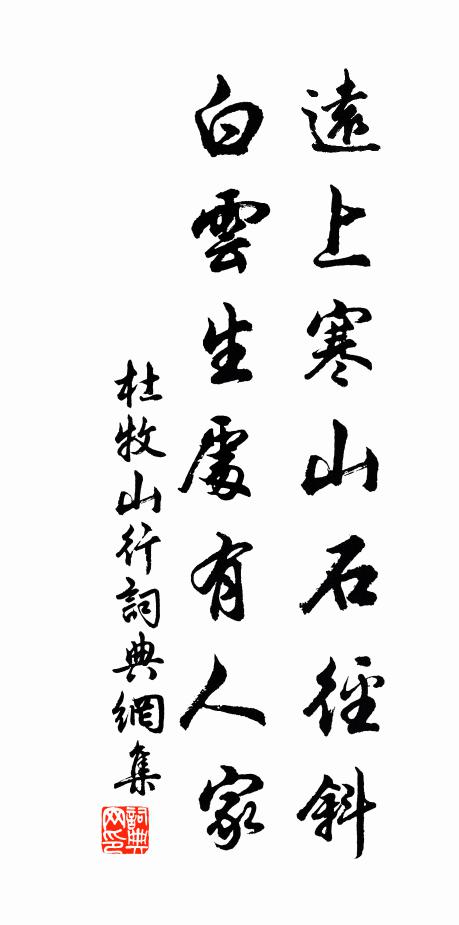 遠上寒山石徑斜
白雲生處有人家
杜牧山行詞典網集
詞典網印